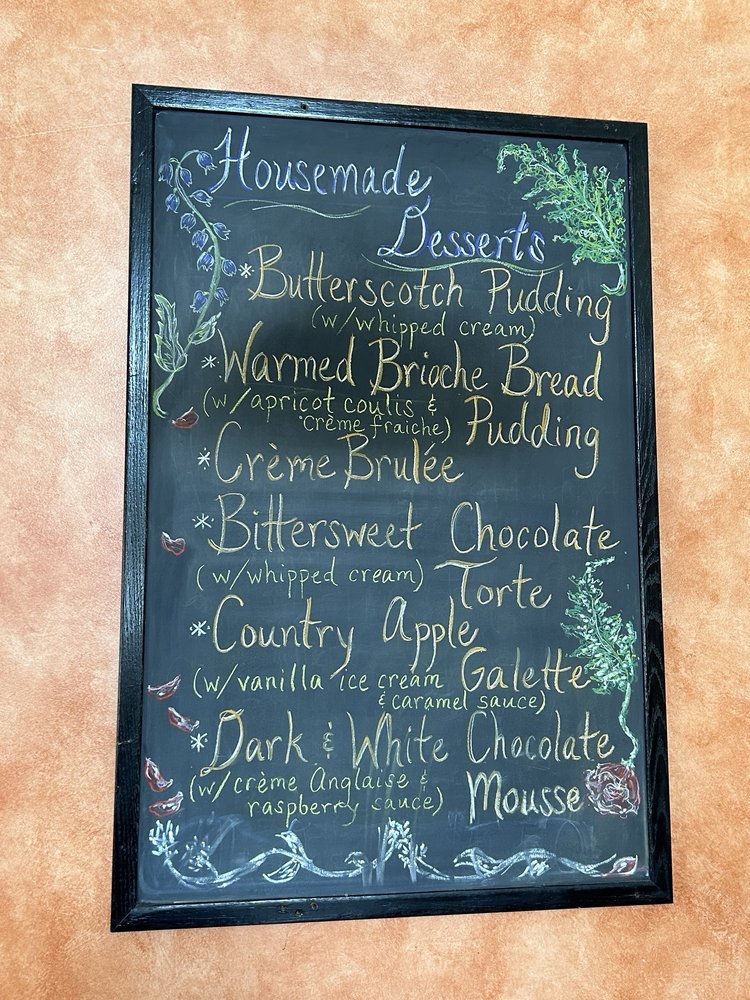 Housemade
Desserts
*Butterscotch Pudding
(w/whipped cream)
*Warmed Brioche Bread
Pudding
(w/apricot coulis &
crème fraiche)
*Crème Brulée
*Bittersweet Chocolate
Torte
(w/whipped cream)
*Country Apple
Galette
(w/vanilla ice cream
& caramel sauce)
*Dark & White Chocolate
Mousse
(w/crème Anglaise &
raspberry sauce)